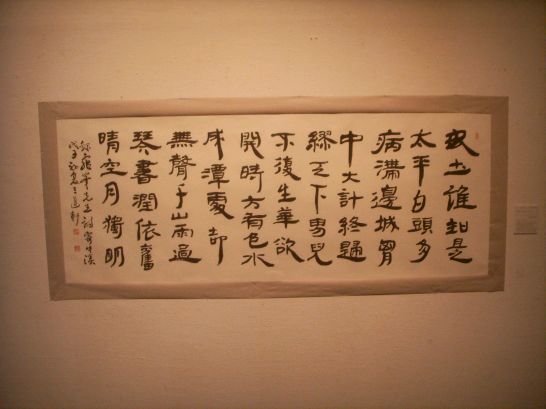 誰知是
太平白頭多
病滿邊城胸
中大計終歸
繆天下男兒
不復生華欲
開時方有色水
成潭處却
無聲千山雨過
琴書潤依舊
晴空月獨明
龜峯先生詩
戊子